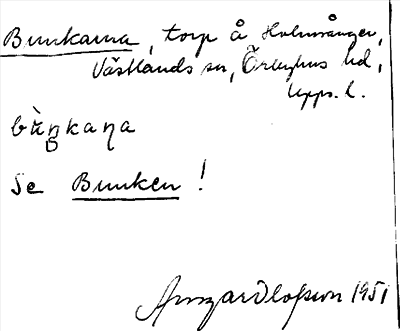 Bunkarna, torp å Holmsånger,
Västlands sn, Örbyhus hd,
Upps. l.
bùŋkaɳa
Se Bunken!
Olofsson 1951